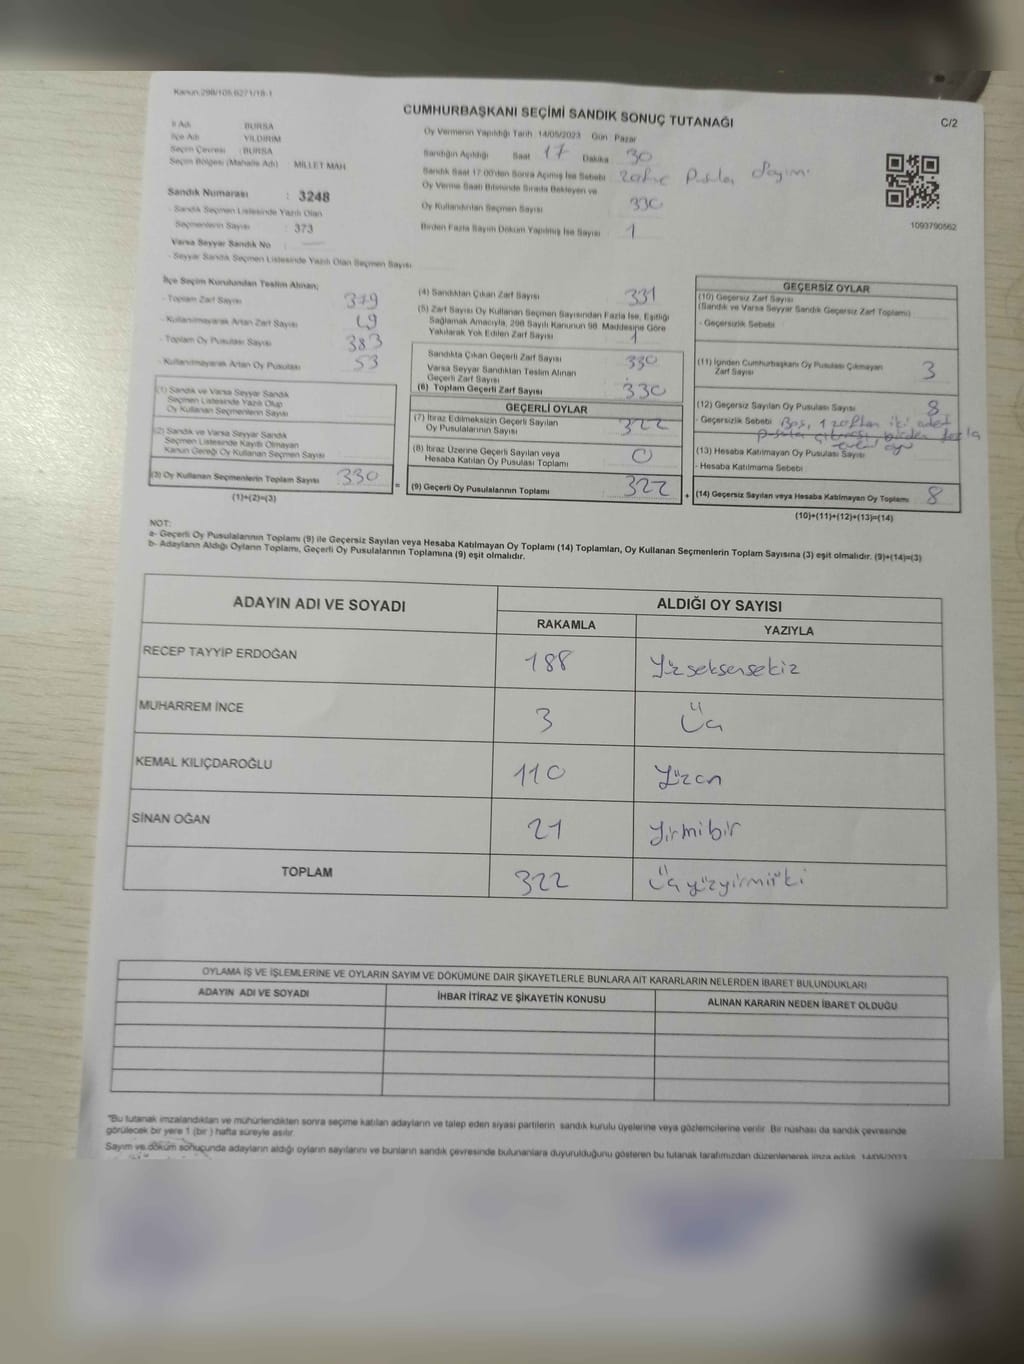 Kanun:298/105,6271/18-1
CUMHURBAŞKANI SEÇİMİ SANDIK SONUÇ TUTANAĞI
C/2
İl Adı : BURSA
İlçe Adı : YILDIRIM
Seçim Çevresi : BURSA
Seçim Bölgesi (Mahalle Adı) : MİLLET MAH
Sandık Numarası : 3248
- Sandık Seçmen Listesinde Yazılı Olan
Seçmenlerin Sayısı : 373
Varsa Seyyar Sandık No :
- Seyyar Sandık Seçmen Listesinde Yazılı Olan Seçmen Sayısı
Oy Vermenin Yapıldığı Tarih : 14/05/2023 Gün : Pazar
Sandığın Açıldığı Saat 17 Dakika 30
Sandık Saat 17:00'den Sonra Açılmış İse Sebebi Zarf Pusula Sayım
Oy Verme Saati Bitiminde Sırada Bekleyen ve
Oy Kullandırılan Seçmen Sayısı 330
Birden Fazla Sayım Döküm Yapılmış İse Sayısı 1
1093790562
İlçe Seçim Kurulundan Teslim Alınan;
- Toplam Zarf Sayısı 379
- Kullanılmayarak Artan Zarf Sayısı 49
- Toplam Oy Pusulası Sayısı 383
- Kullanılmayarak Artan Oy Pusulası 53
(1) Sandık ve Varsa Seyyar Sandık
Seçmen Listesinde Yazılı Olup
Oy Kullanan Seçmenlerin Sayısı
(2) Sandık ve Varsa Seyyar Sandık
Seçmen Listesinde Kayıtlı Olmayan
Kanun Gereği Oy Kullanan Seçmen Sayısı
(3) Oy Kullanan Seçmenlerin Toplam Sayısı 330
(1)+(2)=(3)
(4) Sandıktan Çıkan Zarf Sayısı 331
(5) Zarf Sayısı Oy Kullanan Seçmen Sayısından Fazla İse, Eşitliği
Sağlamak Amacıyla, 298 Sayılı Kanunun 98. Maddesine Göre
Yakılarak Yok Edilen Zarf Sayısı 1
Sandıkta Çıkan Geçerli Zarf Sayısı 330
Varsa Seyyar Sandıktan Teslim Alınan
Geçerli Zarf Sayısı
(6) Toplam Geçerli Zarf Sayısı 330
GEÇERLİ OYLAR
(7) İtiraz Edilmeksizin Geçerli Sayılan
Oy Pusulalarının Sayısı 322
(8) İtiraz Üzerine Geçerli Sayılan veya
Hesaba Katılan Oy Pusulası Toplamı 0
= (9) Geçerli Oy Pusulalarının Toplamı 322 +
GEÇERSİZ OYLAR
(10) Geçersiz Zarf Sayısı
(Sandık ve Varsa Seyyar Sandık Geçersiz Zarf Toplamı)
- Geçersizlik Sebebi
(11) İçinden Cumhurbaşkanı Oy Pusulası Çıkmayan
Zarf Sayısı 3
(12) Geçersiz Sayılan Oy Pusulası Sayısı 8
- Geçersizlik Sebebi Boş, 1 zarftan iki adet
pusula çıkması, birden fazla
(13) Hesaba Katılmayan Oy Pusulası Sayısı
- Hesaba Katılmama Sebebi
(14) Geçersiz Sayılan veya Hesaba Katılmayan Oy Toplamı 8
(10)+(11)+(12)+(13)=(14)
NOT:
a- Geçerli Oy Pusulalarının Toplamı (9) ile Geçersiz Sayılan veya Hesaba Katılmayan Oy Toplamı (14) Toplamları, Oy Kullanan Seçmenlerin Toplam Sayısına (3) eşit olmalıdır. (9)+(14)=(3)
b- Adayların Aldığı Oyların Toplamı, Geçerli Oy Pusulalarının Toplamına (9) eşit olmalıdır.
ADAYIN ADI VE SOYADI
ALDIĞI OY SAYISI
RAKAMLA YAZIYLA
RECEP TAYYİP ERDOĞAN 188 Yüzseksensekiz
MUHARREM İNCE 3 Üç
KEMAL KILIÇDAROĞLU 110 Yüzon
SİNAN OĞAN 21 Yirmibir
TOPLAM 322 Üçyüzyirmiiki
OYLAMA İŞ VE İŞLEMLERİNE VE OYLARIN SAYIM VE DÖKÜMÜNE DAİR ŞİKAYETLERLE BUNLARA AİT KARARLARIN NELERDEN İBARET BULUNDUKLARI
ADAYIN ADI VE SOYADI İHBAR İTİRAZ VE ŞİKAYETİN KONUSU ALINAN KARARIN NEDEN İBARET OLDUĞU
*Bu tutanak imzalandıktan ve mühürlendikten sonra seçime katılan adayların ve talep eden siyasi partilerin sandık kurulu üyelerine veya gözlemcilerine verilir. Bir nüshası da sandık çevresinde
görülecek bir yere 1 (bir) hafta süreyle asılır.
Sayım ve döküm sonuçunda adayların aldığı oyların sayılarını ve bunların sandık çevresinde bulunanlara duyurulduğunu gösteren bu tutanak tarafımızdan düzenlenerek imza edildi. 14/05/2023